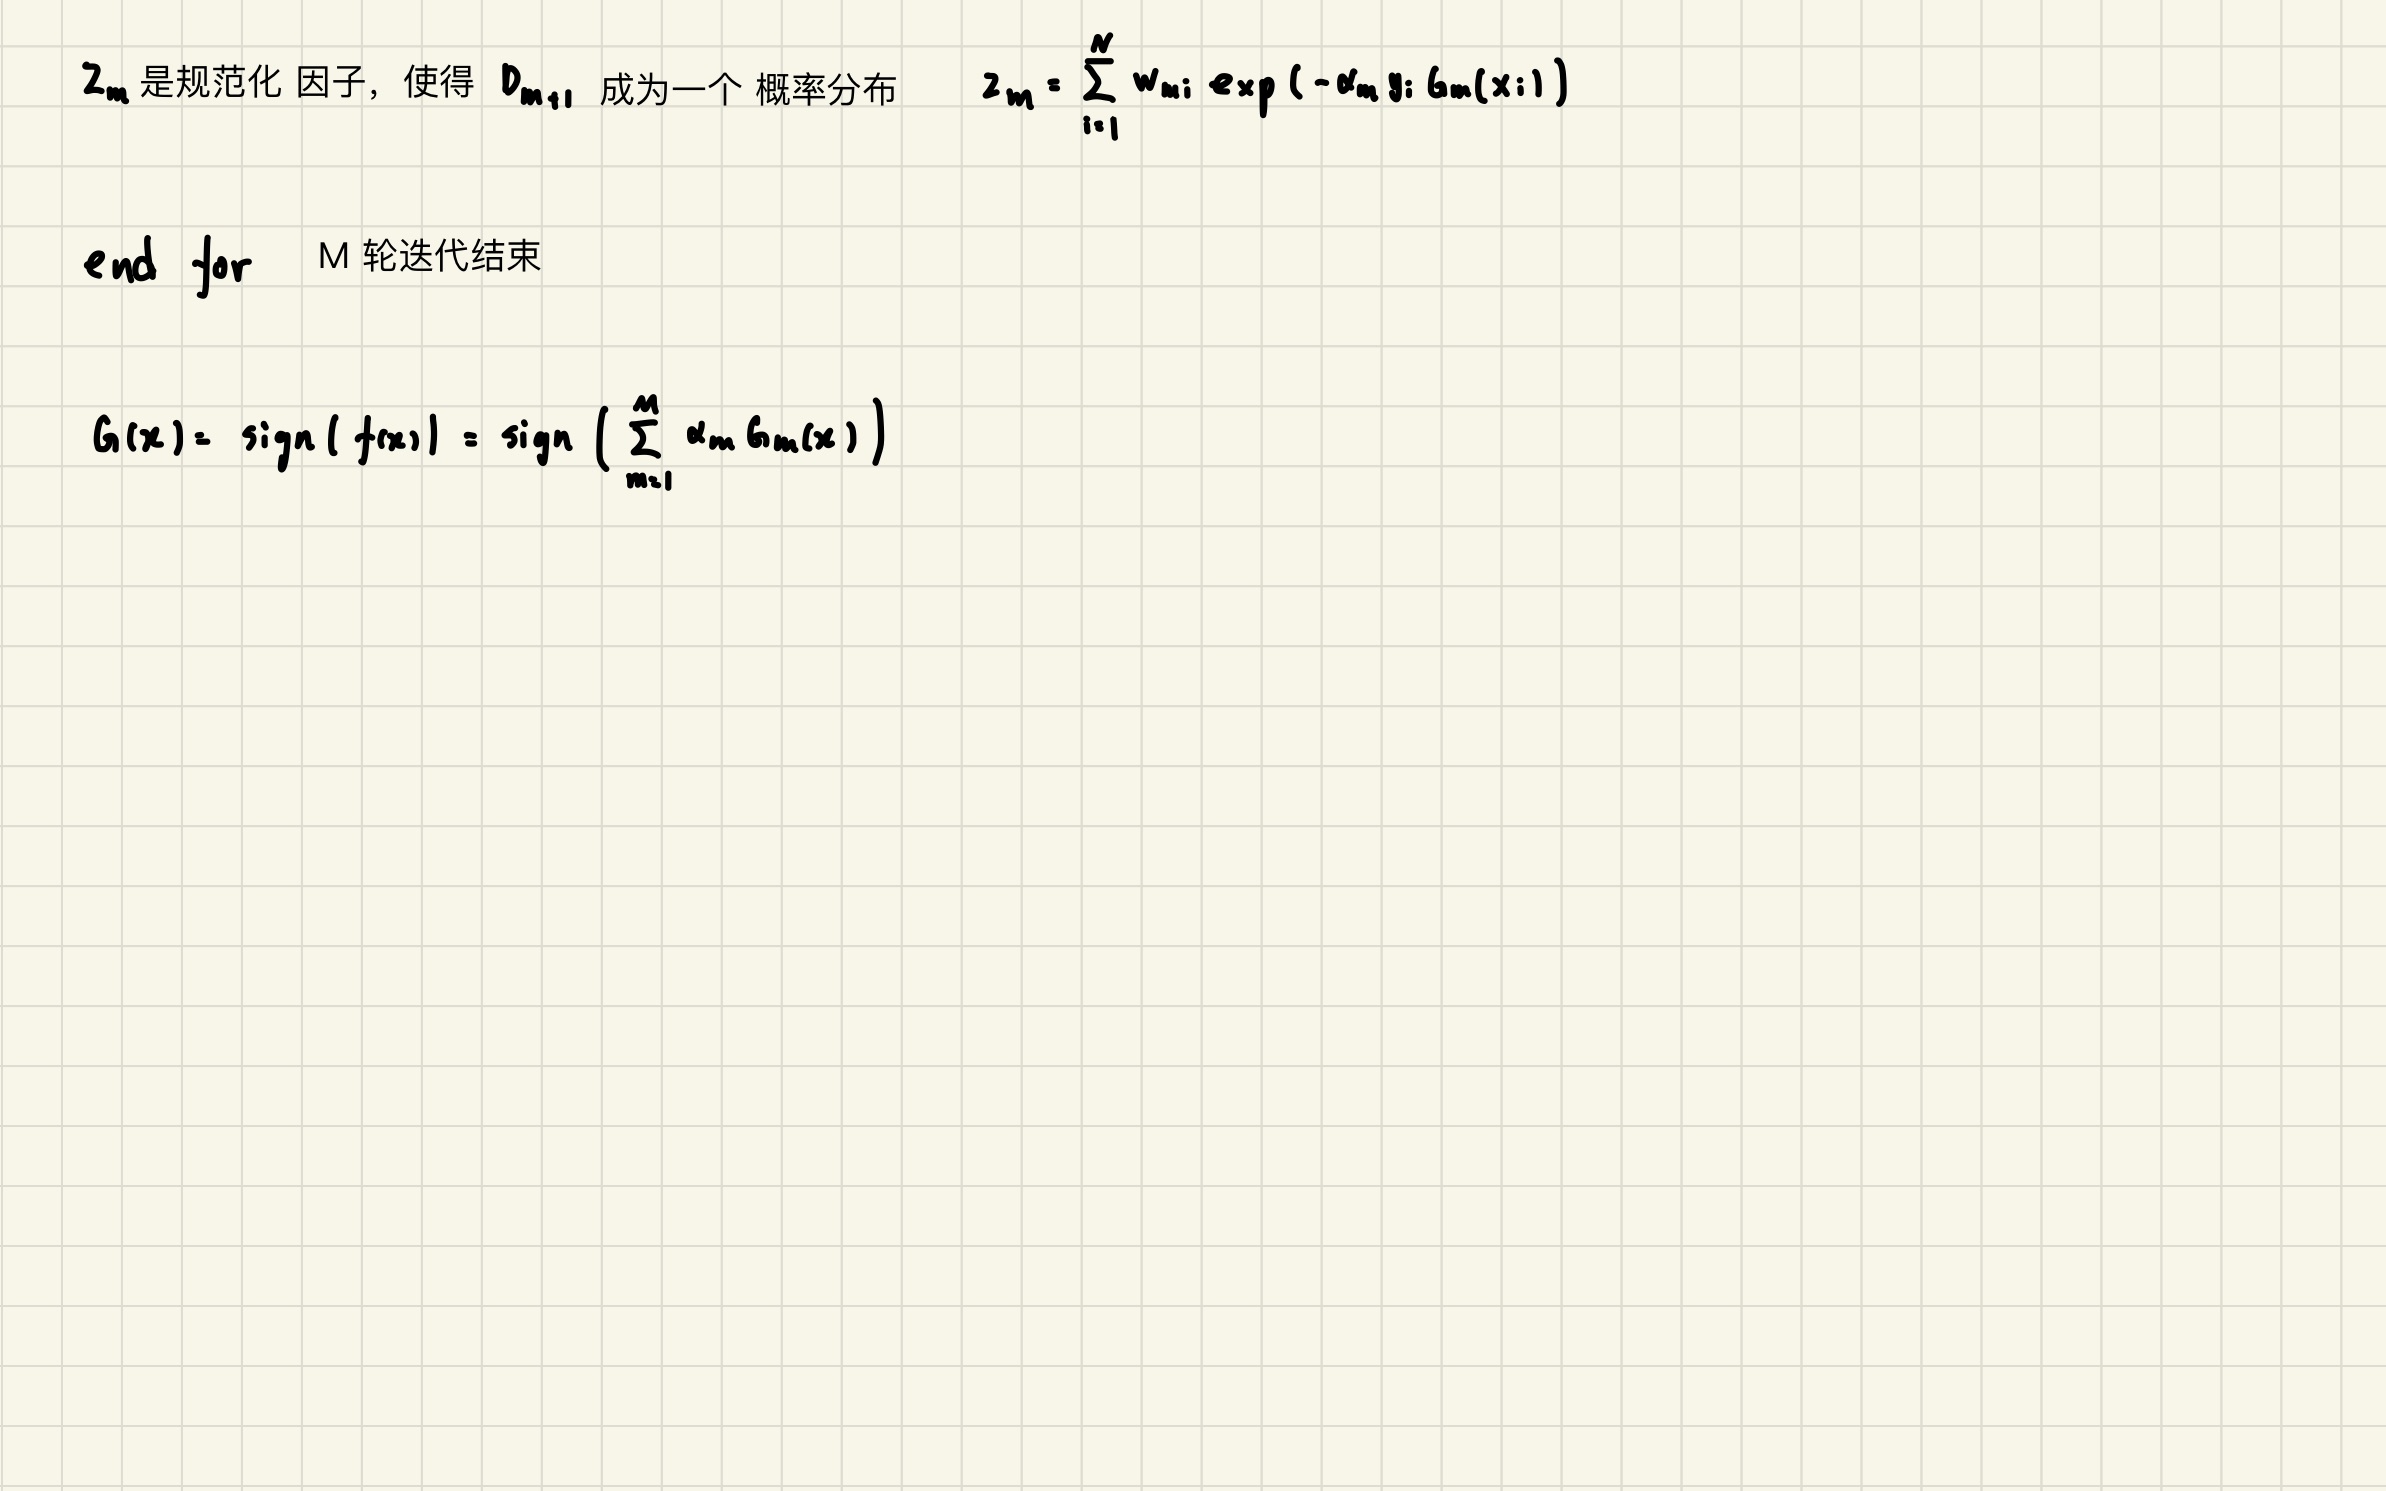 Z_m 是规范化 因子，使得 D_{m+1} 成为一个 概率分布 Z_m = \sum_{i=1}^{N} w_{mi} exp(-α_m y_i G_m(x_i))
end for M 轮迭代结束
G(x) = sign(f(x)) = sign(\sum_{m=1}^{M} α_m G_m(x))